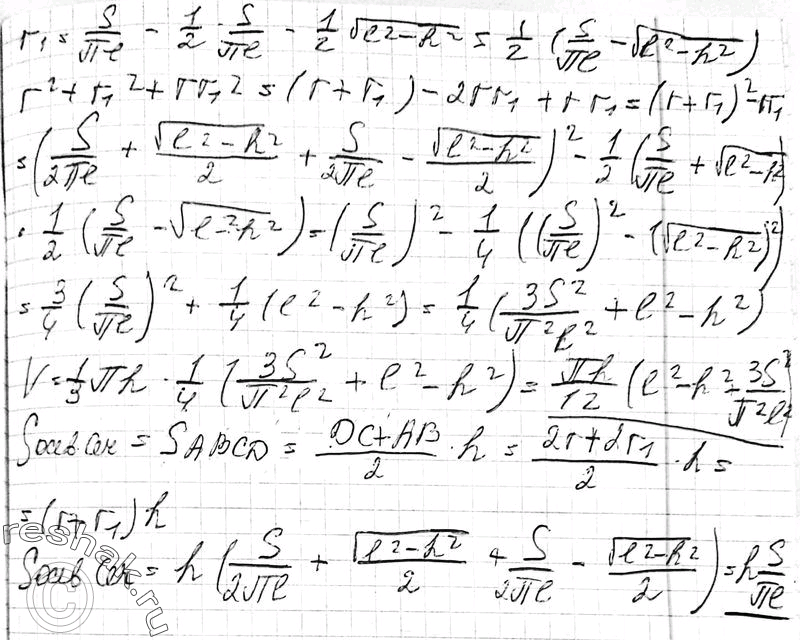 r₁ = S/πe - 1/2 · S/πe - 1/2 √(e²-h²) = 1/2 (S/πe - √(e²-h²))
r² + r₁² + rr₁² = (r+r₁) - 2rr₁ + rr₁ = (r+r₁)² - rr₁
= (S/2πe + √(e²-h²)/2 + S/2πe - √(e²-h²)/2)² - 1/2 (S/πe + √(e²-h²))
· 1/2 (S/πe - √(e-²h²)) = (S/πe)² - 1/4 ((S/πe)² - (√(e²-h²))²)
= 3/4 (S/πe)² + 1/4 (e²-h²) = 1/4 (3S²/π²e² + e² - h²)
V = 1/3 πh · 1/4 (3S²/π²e² + e² - h²) = πh/12 (e² - h² - 3S²/π²e²)
Sосев сеч = SABCD = (DC+AB)/2 · h = (2r+2r₁)/2 · h =
= (r+r₁) h
Sосев сеч = h (S/2πe + √(e²-h²)/2 + S/2πe - √(e²-h²)/2) = h S/πe
reshak.ru